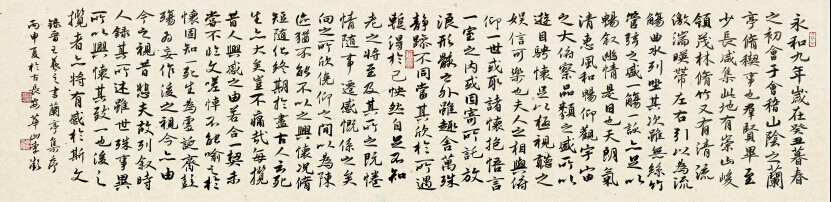 永和九年歲在癸丑暮春
之初會于會稽山陰之蘭
亭脩稧事也群賢畢至
少長咸集此地有崇山峻
領茂林脩竹又有清流
激湍暎帶左右引以為流
觴曲水列坐其次雖無絲竹
管弦之盛一觴一詠亦足以
暢敘幽情是日也天朗氣
清惠風和暢仰觀宇宙
之大俯察品類之盛所以
遊目騁懷足以極視聽之
娛信可樂也夫人之相與俯
仰一世或取諸懷抱悟言
一室之內或因寄所託放
浪形骸之外雖趣舍萬殊
靜躁不同當其欣於所遇
暫得於己怏然自足不知
老之將至及其所之既惓
情隨事遷感慨係之矣
向之所欣俛仰之間以為陳
迹猶不能不以之興懷況脩
短隨化終期於盡古人云死
生亦大矣豈不痛哉每攬
昔人興感之由若合一契未
嘗不臨文嗟悼不能喻之於
懷固知一死生為虛誕齊彭
殤為妄作後之視今亦由
今之視昔悲夫故列敘時
人錄其所述雖世殊事異
所以興懷其致一也後之
攬者亦將有感於斯文
錄晉王羲之書蘭亭集序
丙申夏於古長安華山李